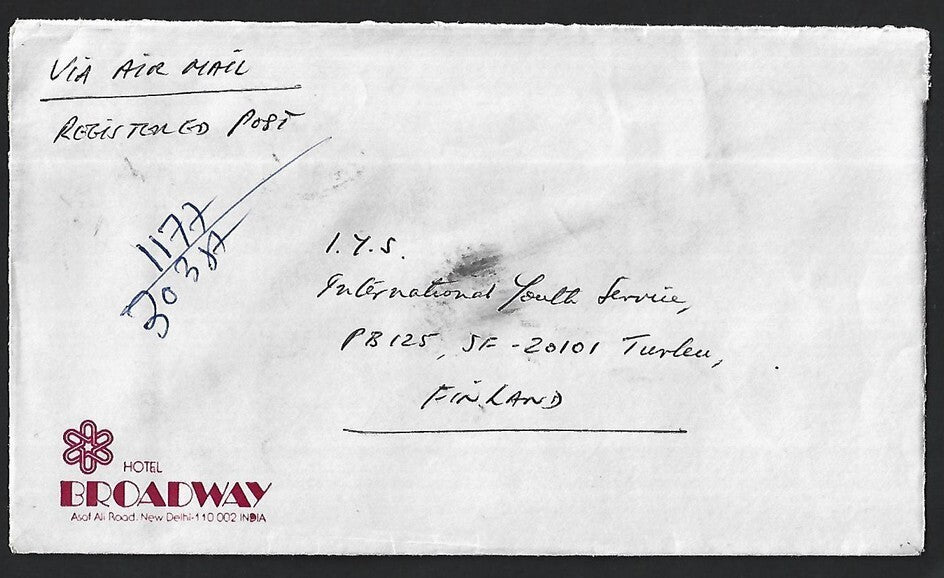 VIA AIR MAIL
REGISTERED POST
1177
30 3 87
I.Y.S.
International Youth Service,
PB 125, SF-20101 Turku,
FINLAND
HOTEL
BROADWAY
Asaf Ali Road, New Delhi-110 002 INDIA